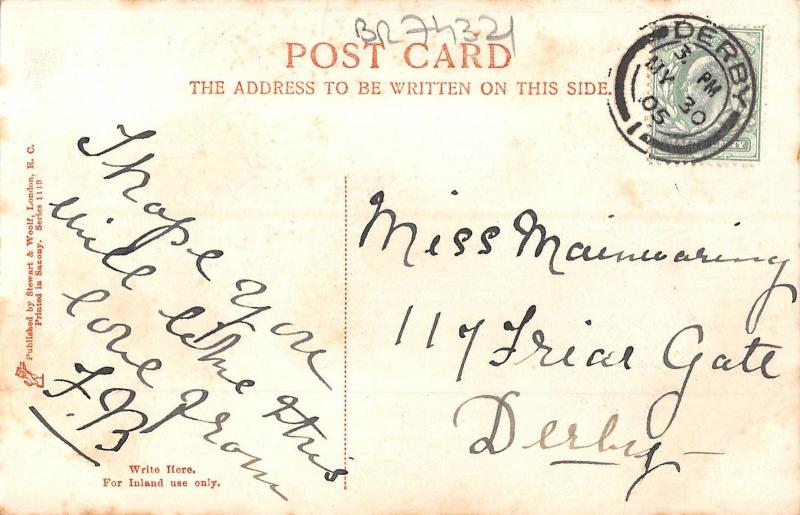 BR74321
POST CARD
THE ADDRESS TO BE WRITTEN ON THIS SIDE.
DERBY
3 PM
MY 30
05
Published by Stewart & Woolf, London, E. C.
Printed in Saxony. Series 1119
I hope you
will like this
love from
F.B
Write Here.
For Inland use only.
Miss Mainwaring
117 Friar Gate
Derby